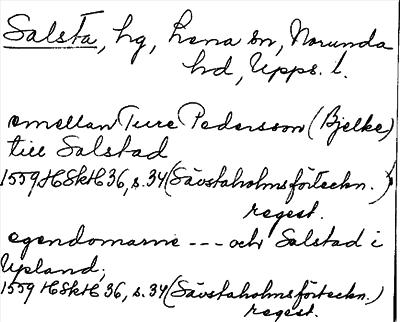 Salsta, hg, Lena sn, Norunda
hd, Upps. l.
emellan Ture Pedersson (Bjelke)
till Salstad
1559 HSkH 36, s. 34 (Sävstaholmsförteckn.)
regest.
egendomarne --- och Salstad i
Upland,
1559 HSkH 36, s. 34 (Sävstaholmsförteckn.)
regest.